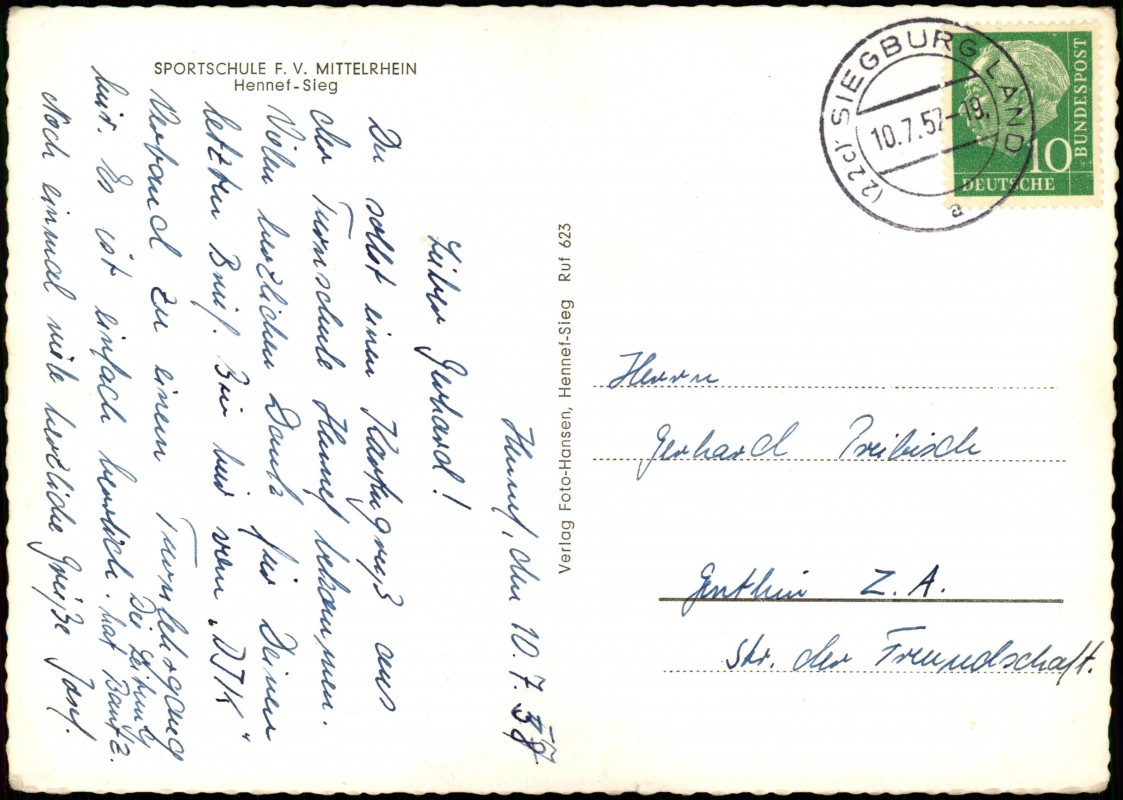 SPORTSCHULE F. V. MITTELRHEIN
Hennef-Sieg
Hennef, den 10. 7. 57
Lieber Gerhard!
Du sollst einen Kartengruß aus
der Turnschule Hennef bekommen.
Vielen herzlichen Dank für Deinen
letzten Brief. Bin hier vom „DJK“
Verband zu einem Turnlehrgang
hier. Es ist einfach herrlich. Die Leitung hat Bantz.
Noch einmal viele herzliche Grüße Josef.
Verlag Foto-Hansen, Hennef-Sieg Ruf 623
(22c) SIEGBURG LAND
10.7.57-19.
a
10
DEUTSCHE
BUNDESPOST
Herrn
Gerhard Preibisch
Genthin Z. A.
Str. der Freundschaft.